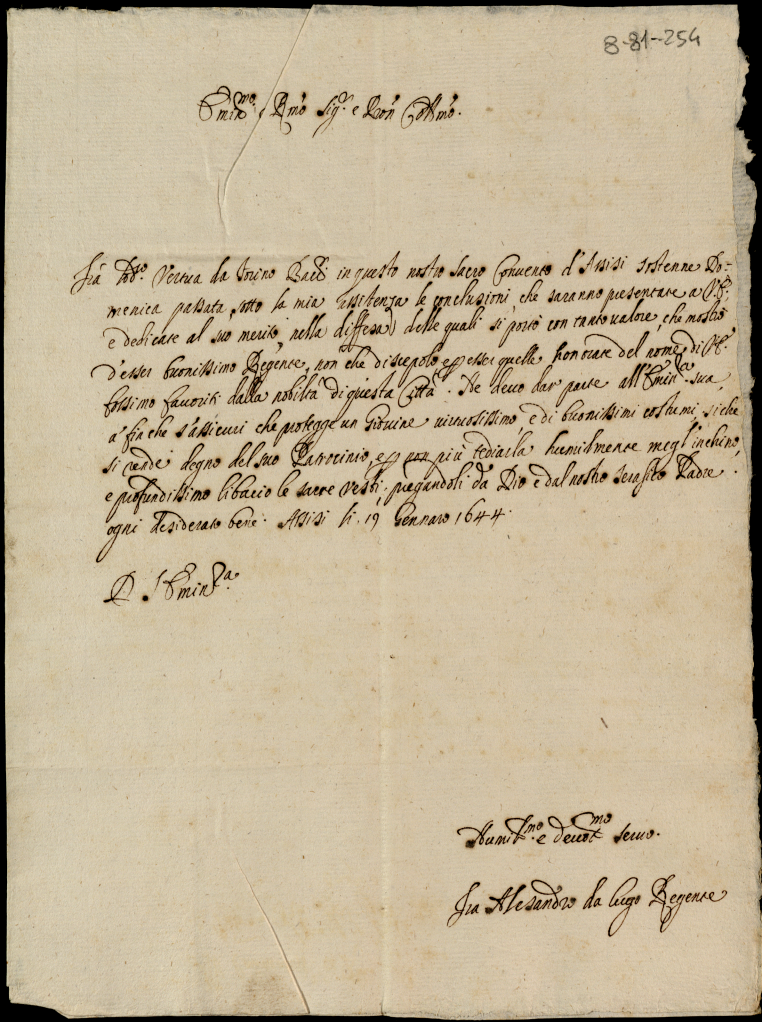 8-81-254
Emin.mo e Rmo Sigr. e Pron Collmo.
Fra Vertua da Torino Bacc. in questo nostro sacro Convento d'Assisi sostenne Do-
menica passata sotto la mia assistenza le conclusioni che saranno presentate a V.E.
e dedicate al suo merito, nella diffesa delle quali si portò con tanto valore, che mostrò
d'esser buonissimo Regente, non che discepolo, e per esser quelle honorate del nome di V.E.
fossimo favoriti dalla nobiltà di questa Città. Ne devo dar parte all'Emin.za sua,
a' fin che s'assicuri che protegge un Giovine virtuosissimo e di buonissimi costumi, si che
si rende degno del suo Patrocinio, e per non più tediarla humilmente megl'inchino,
e profundissimo libaccio le sacre vesti, pregandoli da Dio e dal nostro serafico Padre
ogni desiderato bene. Assisi li 19 Gennaro 1644.
D. V. Emin.za
Humil.mo e devot.mo servo.
Fra Alesandro da Lugo Regente